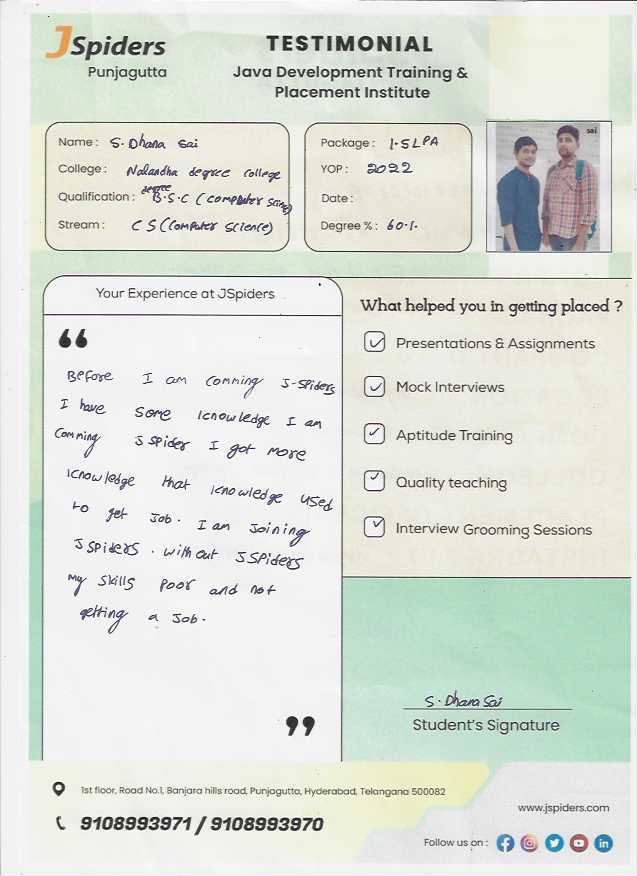 JSpiders
Punjagutta
TESTIMONIAL
Java Development Training &
Placement Institute
Name : S. Dhana Sai
College : Nalandha degree college
Qualification : degree B.S.C ( computer scince)
Stream : C S ( Computer Science)
Package : 1.5 LPA
YOP : 2022
Date :
Degree % : 60.1.
sai
Your Experience at JSpiders
Before I am Comming J-SPiders
I have some knowledge I am
Comming JSpider I got more
knowledge that knowledge used
to get Job. I am Joining
JSPiders. without JSPiders
my skills poor and not
getting a Job.
What helped you in getting placed ?
Presentations & Assignments
Mock Interviews
Aptitude Training
Quality teaching
Interview Grooming Sessions
S. Dhana Sai
Student's Signature
1st floor, Road No.1, Banjara hills road, Punjagutta, Hyderabad, Telangana 500082
9108993971 / 9108993970
www.jspiders.com
Follow us on :